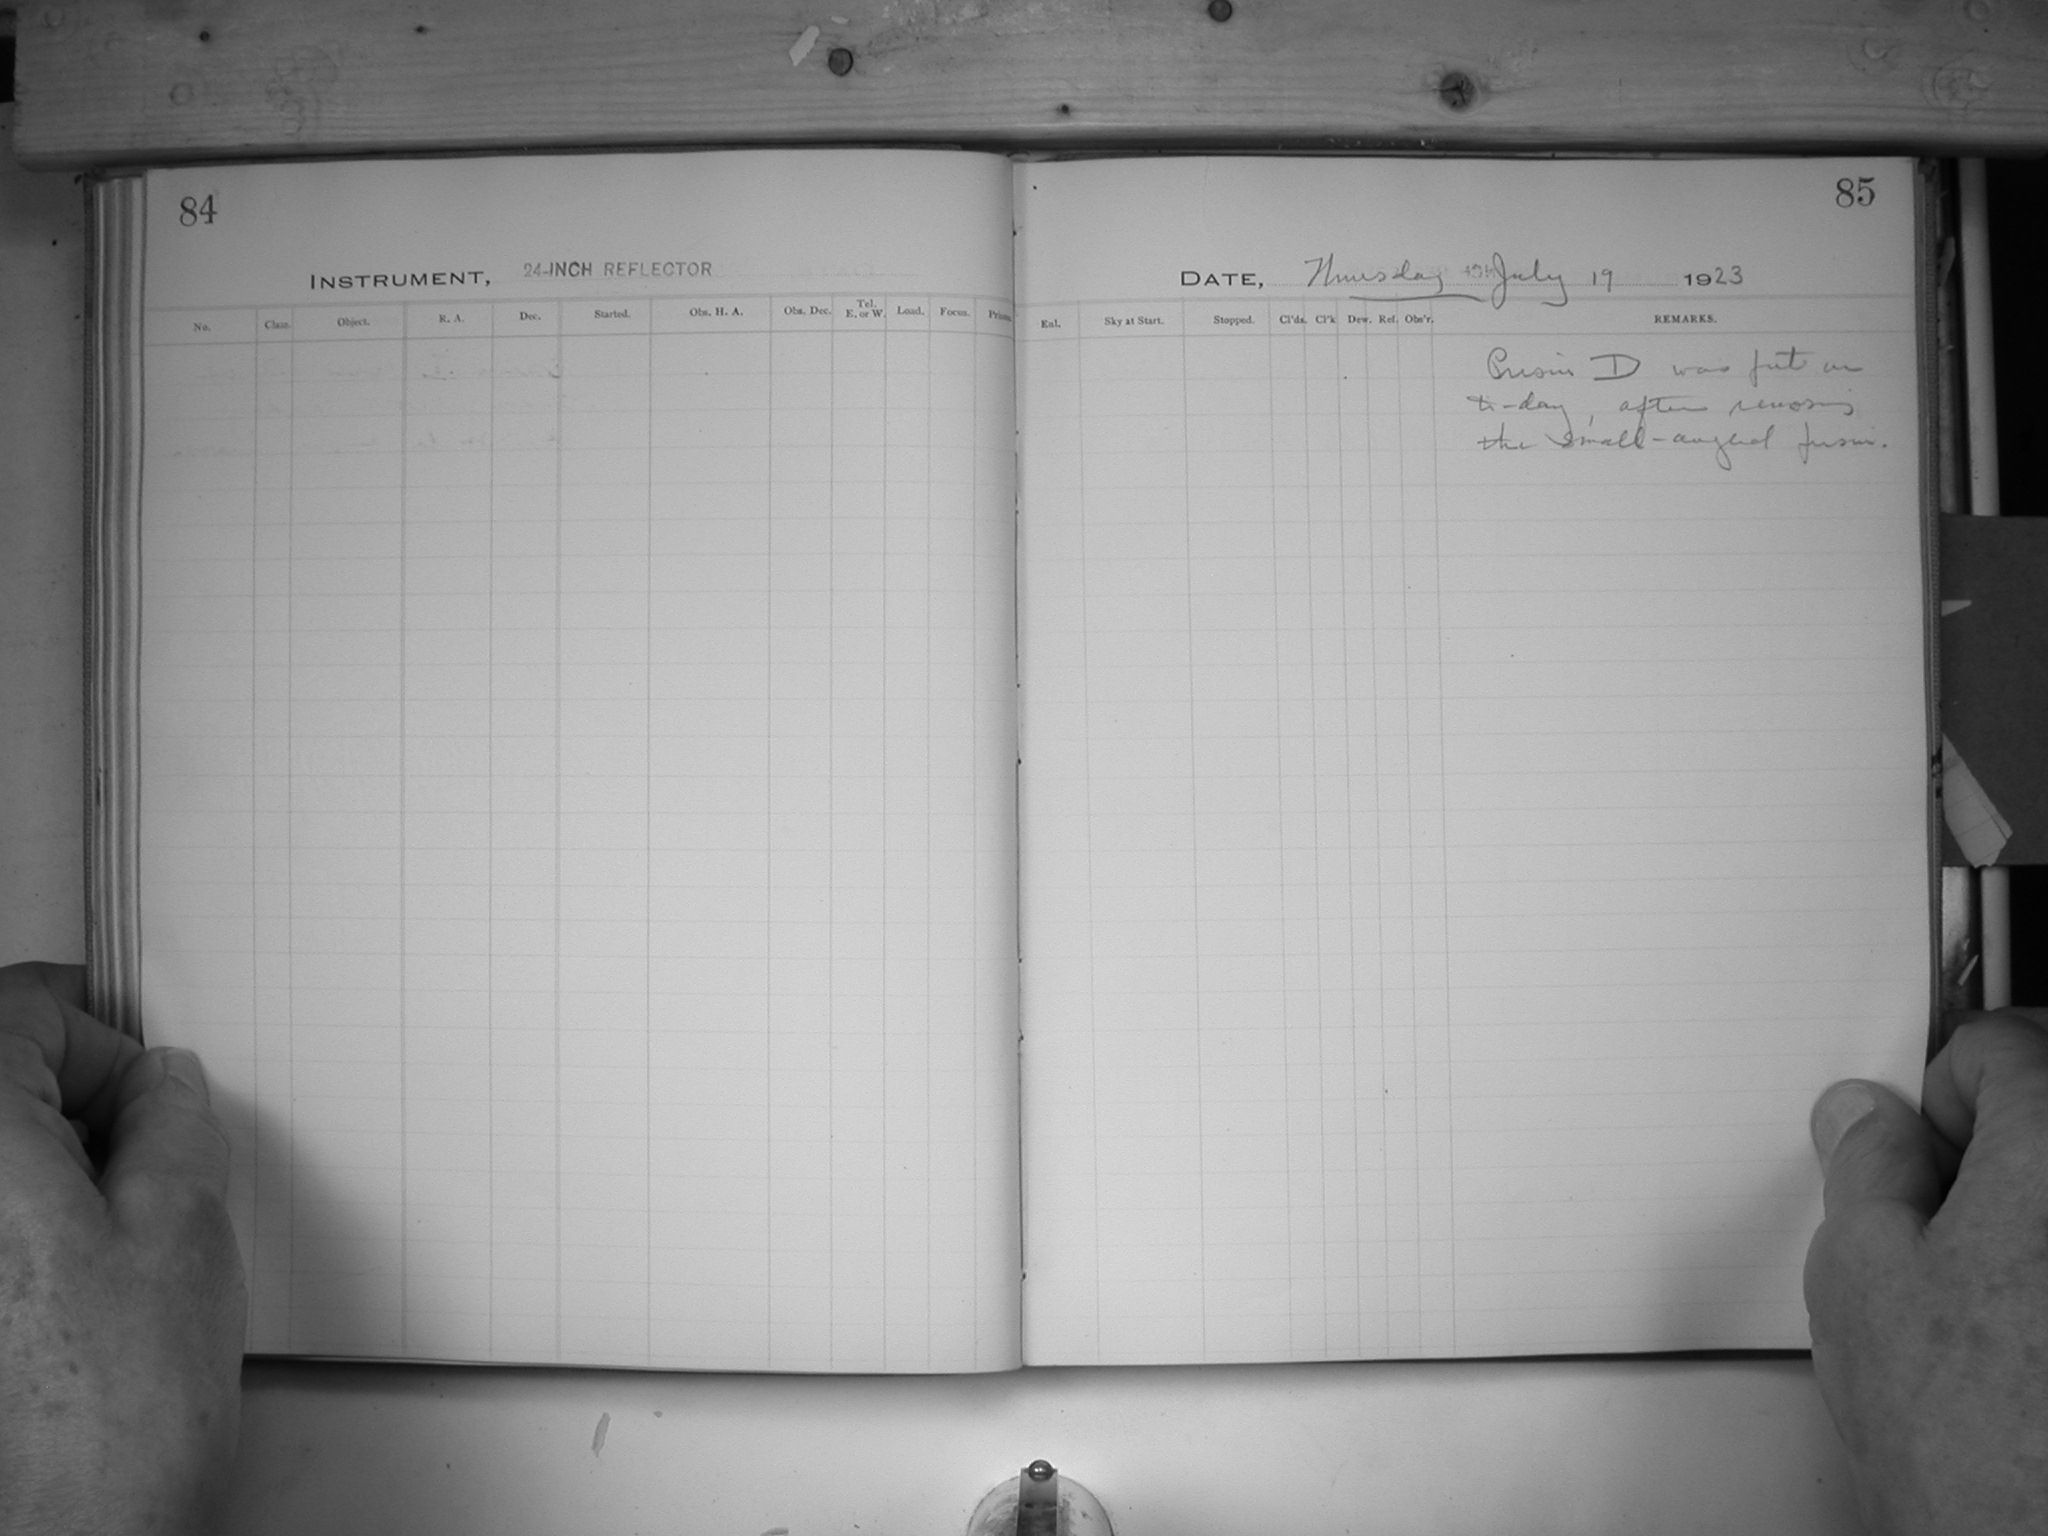 84
INSTRUMENT, 24-INCH REFLECTOR
No. Class. Object. R. A. Dec. Started. Obs. H. A. Obs. Dec. Tel. E. or W. Load. Focus. Prisms.
85
DATE, Thursday July 19 1923
Enl. Sky at Start. Stopped. Cl'ds. Cl'k Dew. Ref. Obs'r. REMARKS.
Prism D was put on
to-day, after removing
the small-angled prism.